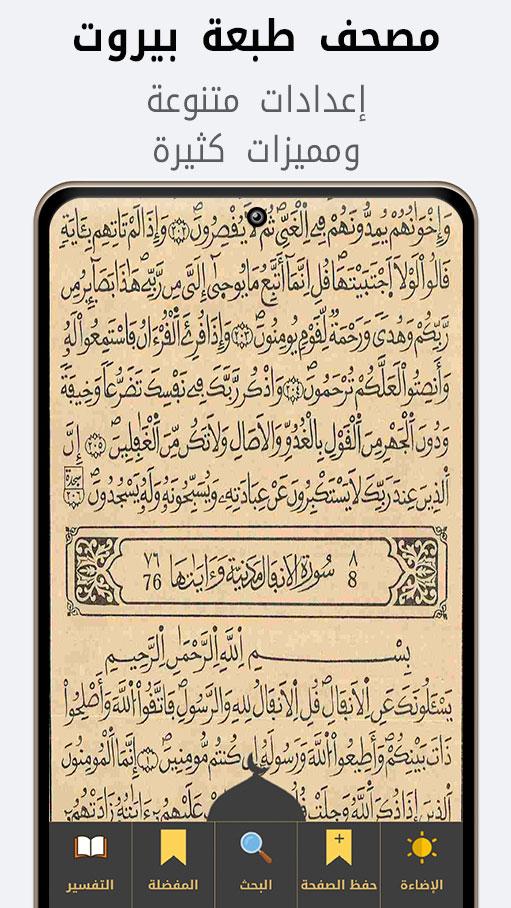 مصحف طبعة بيروت
إعدادات متنوعة
ومميزات كثيرة
وَإِخْوَانُهُمْ يُمِدُّونَهُمْ فِي الْغَيِّ ثُمَّ لَا يُقْصِرُونَ ٢٠٢ وَإِذَا لَمْ تَاتِهِم بِـَٔايَةٍ
قَالُوا لَوْلَا اجْتَبَيْتَهَا قُلِ انَّمَا أَتَّبِعُ مَا يُوحَىٰ إِلَيَّ مِن رَّبِّي هَٰذَا بَصَآئِرُ مِن
رَّبِّكُمْ وَهُدًى وَرَحْمَةٌ لِّقَوْمٍ يُومِنُونَ ٢٠٣ وَإِذَا قُرِئَ الْقُرْءَانُ فَاسْتَمِعُوا لَهُ
وَأَنصِتُوا لَعَلَّكُمْ تُرْحَمُونَ ٢٠٤ وَاذْكُر رَّبَّكَ فِي نَفْسِكَ تَضَرُّعًا وَخِيفَةً
وَدُونَ الْجَهْرِ مِنَ الْقَوْلِ بِالْغُدُوِّ وَالَاصَالِ وَلَا تَكُن مِّنَ الْغَٰفِلِينَ ٢٠٥ إِنَّ
الَّذِينَ عِندَ رَبِّكَ لَا يَسْتَكْبِرُونَ عَنْ عِبَادَتِهِ وَيُسَبِّحُونَهُ وَلَهُ يَسْجُدُونَ سجدة ٢٠٦
٨ 8 سُورَةُ الَانفَالِ مَدَنِيَّة وَءَايَٰتُهَا ٧٦ 76
بِسْمِ اللَّهِ الرَّحْمَٰنِ الرَّحِيمِ
يَسْـَٔلُونَكَ عَنِ الَانفَالِ قُلِ الَانفَالُ لِلهِ وَالرَّسُولِ فَاتَّقُوا اللَّهَ وَأَصْلِحُوا
ذَاتَ بَيْنِكُمْ وَأَطِيعُوا اللَّهَ وَرَسُولَهُ إِن كُنتُم مُّومِنِينَ ١ إِنَّمَا الْمُومِنُونَ
الَّذِينَ إِذَا ذُكِرَ اللَّهُ وَجِلَتْ عَلَيْهِمُ ءَايَٰتُهُ زَادَتْهُمُ
الإضاءة
حفظ الصفحة
البحث
المفضلة
التفسير